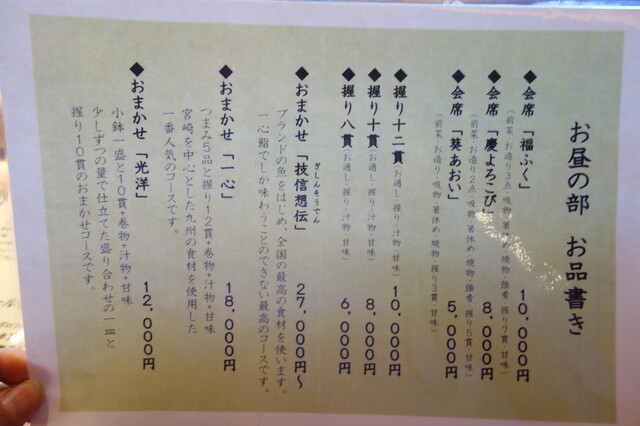 お昼の部 お品書き
◆会席「福ふく」 10,000円
(前菜・お造り3点・吸物・箸休め・焼物・強肴・握り7貫・甘味)
◆会席「慶よろこび」 8,000円
(前菜・お造り2点・吸物・箸休め・焼物・強肴・握り5貫・甘味)
◆会席「葵あおい」 5,000円
(前菜・お造り・吸物・箸休め・焼物・握り3貫・甘味)
◆握り十二貫 お通し・握り・汁物・甘味) 10,000円
◆握り十貫 お通し・握り・汁物・甘味) 8,000円
◆握り八貫 お通し・握り・汁物・甘味) 6,000円
◆おまかせ「技信想伝」 27,000円〜
ぎしんそうでん
ブランドの魚をはじめ、全国の最高の食材を使います。
一心鮨でしか味わうことのできない最高のコースです。
◆おまかせ「一心」 18,000円
つまみ5品と握り12貫+巻物+汁物+甘味
宮崎を中心とした九州の食材を使用した
一番人気のコースです。
◆おまかせ「光洋」 12,000円
小鉢一盛と10貫+巻物+汁物+甘味
少しずつの量で仕立てた盛り合わせの一皿と
握り10貫のおまかせコースです。